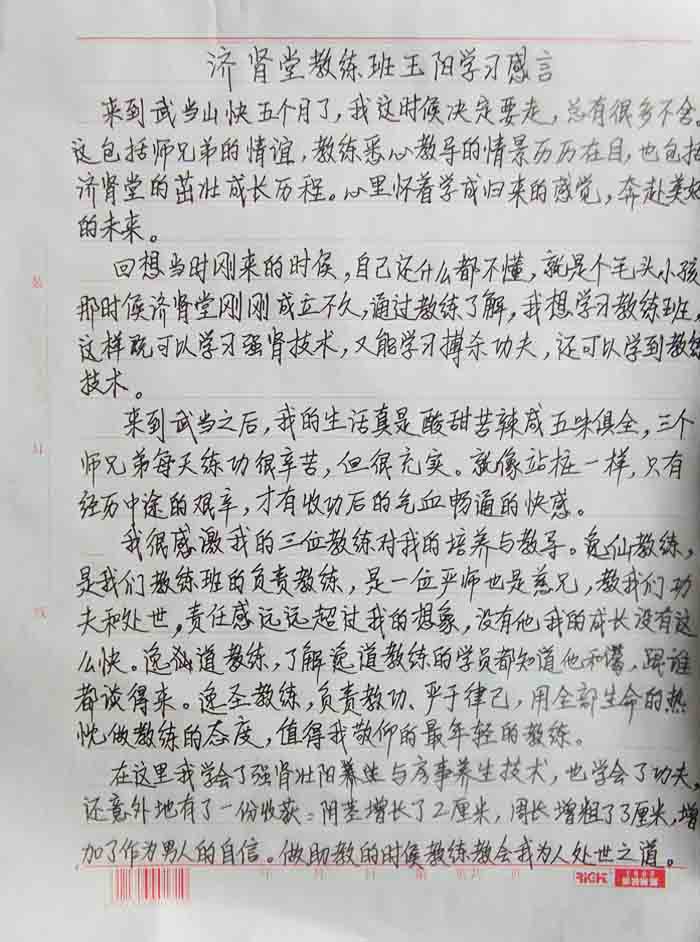 济肾堂教练班王阳学习感言
来到武当山快五个月了,我这时候决定要走,总有很多不舍。
这包括师兄弟的情谊,教练悉心教导的情景历历在目,也包括
济肾堂的茁壮成长历程。心里怀着学成归来的感觉,奔赴美好
的未来。
回想当时刚来的时候,自己还什么都不懂,就是个毛头小孩
那时候济肾堂刚刚成立不久,通过教练了解,我想学习教练班,
这样既可以学习强肾技术,又能学习搏杀功夫,还可以学到教练
技术。
来到武当之后,我的生活真是酸甜苦辣咸五味俱全,三个
师兄弟每天练功很辛苦,但很充实。就像站桩一样,只有
经历中途的艰辛,才有收功后的气血畅通的快感。
我很感激我的三位教练对我的培养与教导。逸仙教练,
是我们教练班的负责教练,是一位严师也是慈兄,教我们功
夫和处世,责任感远远超过我的想象,没有他我的成长没有这
么快。逸 道教练,了解逸道教练的学员都知道他和蔼,跟谁
都谈得来。逸圣教练,负责教功、严于律己,用全部生命的热
忱做教练的态度,值得我敬仰的最年轻的教练。
在这里我学会了强肾壮阳养生与房事养生技术,也学会了功夫,
还意外地有了一份收获:阴茎增长了2厘米,周长增粗了3厘米,增
加了作为男人的自信。做助教的时候教练教会我为人处世之道。
装
订
线
年 月 日 第 页
RiCH